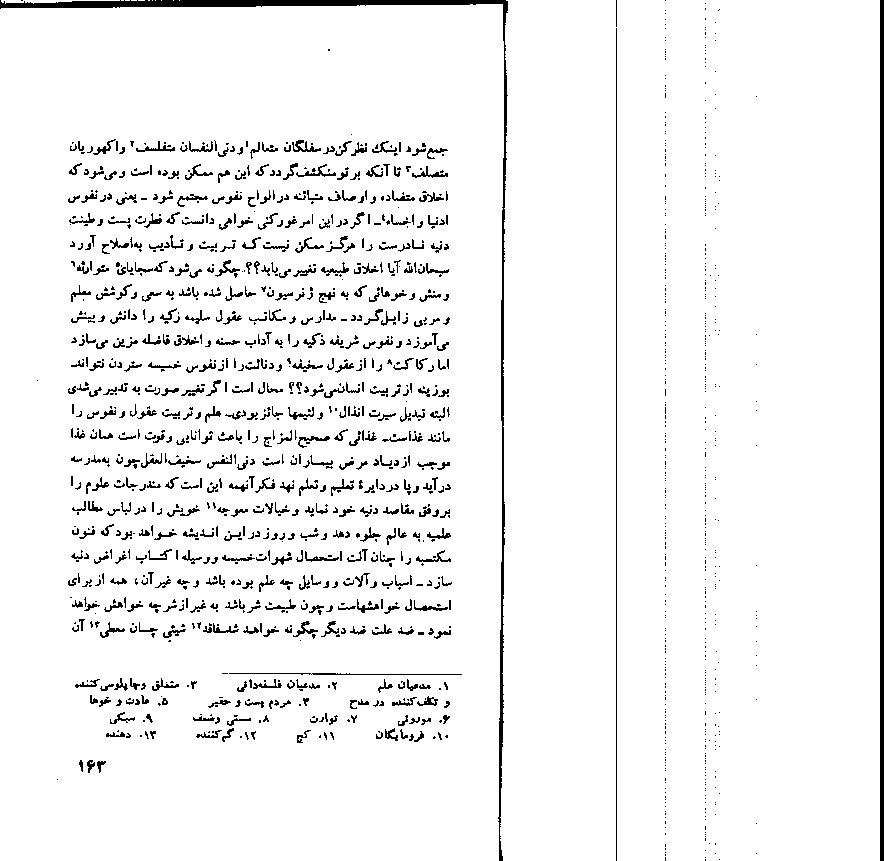 جمع‌شود اینک نظرکن‌در سفلگان متعالم۱ و دنی‌النفسان متفلسف۲ واکهوریان
متصلف۳ تا آنکه برتومنکشف‌گردد که این هم ممکن بوده است و می‌شود که
اخلاق متضاده و اوصاف متبائنه در الواح نفوس مجتمع شود ـ یعنی در نفوس
ادنیا و اخساء۴ـ اگر در این امر غور کنی خواهی دانست که فطرت پست و طینت
دنیه نـادرست را هرگـز ممکن نیست کـه تـربیت و تـأدیب به‌اصلاح آورد
سبحان‌الله آیا اخلاق طبیعیه تغییر می‌یابد؟؟. چگونه می‌شود که‌سجایای۵ متوارثه۶
و منش و خوهائی که به نهج ژنرسیون۷ حاصل شده باشد به سعی و کوشش معلم
و مربی زایـل‌گـردد ـ مدارس و مکـاتب عقـول سلیمه زکیه را دانش و بینش
می‌آموزد و نفوس شریفه ذکیه را به آداب حسنه و اخلاق فاضله مزین می‌سازد
اما رکاکت۸ را از عقول سخیفه۹ و دنائت‌را از نفوس خسیسه ستردن نتواندـ
بوزینه از تربیت انسان‌می‌شود؟؟ محال است اگر تغییر صورت به تدبیر می‌شدی
البته تبدیل سیرت انذال۱۰ و لئیمها جائز بودی‌ـ علم و تربیت عقول و نفوس را
مانند غذاست‌ـ غذائی که صحیح‌المزاج را باعث توانایی و قوت است همان غذا
موجب ازدیـاد مرض بیمـاران است دنی‌النفس سخیف‌العقل‌چون به‌مدرسه
درآید و پا در دایرهٔ تعلیم و تعلم نهد فکر آنهمه این است که مندرجات علوم را
بر وفق مقاصد دنیه خود نماید و خیالات معوجه۱۱ خویش را در لباس مطالب
علمیه به عالم جلوه دهد و شب و روز در ایـن انـدیشه خـواهد بود که فنون
مکتسبه را چنان آلت استحصال شهوات‌خسیسه و وسیله اکتـساب اغراض دنیه
سازد ـ اسباب و آلات و وسایل چه علم بوده باشد و چه غیر آن، همه از برای
استحصال خواهشهاست و چون طبیعت شر باشد به غیر از شر چه خواهش خواهد
نمود ـ ضد علت ضد دیگر چگونه خواهـد شدـ‌فاقد۱۲ شیئی چـان معطی۱۳ آن
۱. مدعیان علم ۲. مدعیان فلسفه‌دانی ۳. متملق و چاپلوسی‌کننده
و تکلف‌کننده در مدح ۴. مردم پست و حقیر ۵. عادت و خوها
۶. موروثی ۷. توارث ۸. سستی و ضعف ۹. سبکی
۱۰. فرومایگان ۱۱. کج ۱۲. گم‌کننده ۱۳. دهنده
۱۶۳